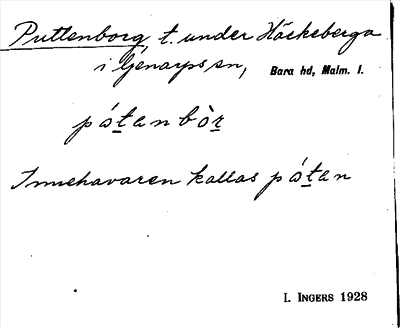 Puttenborg, t. under Häckeberga
i Genarps sn, Bara hd, Malm. l.
pót̲anbòr̲
Innehavaren kallas pót̲an
I. INGERS 1928